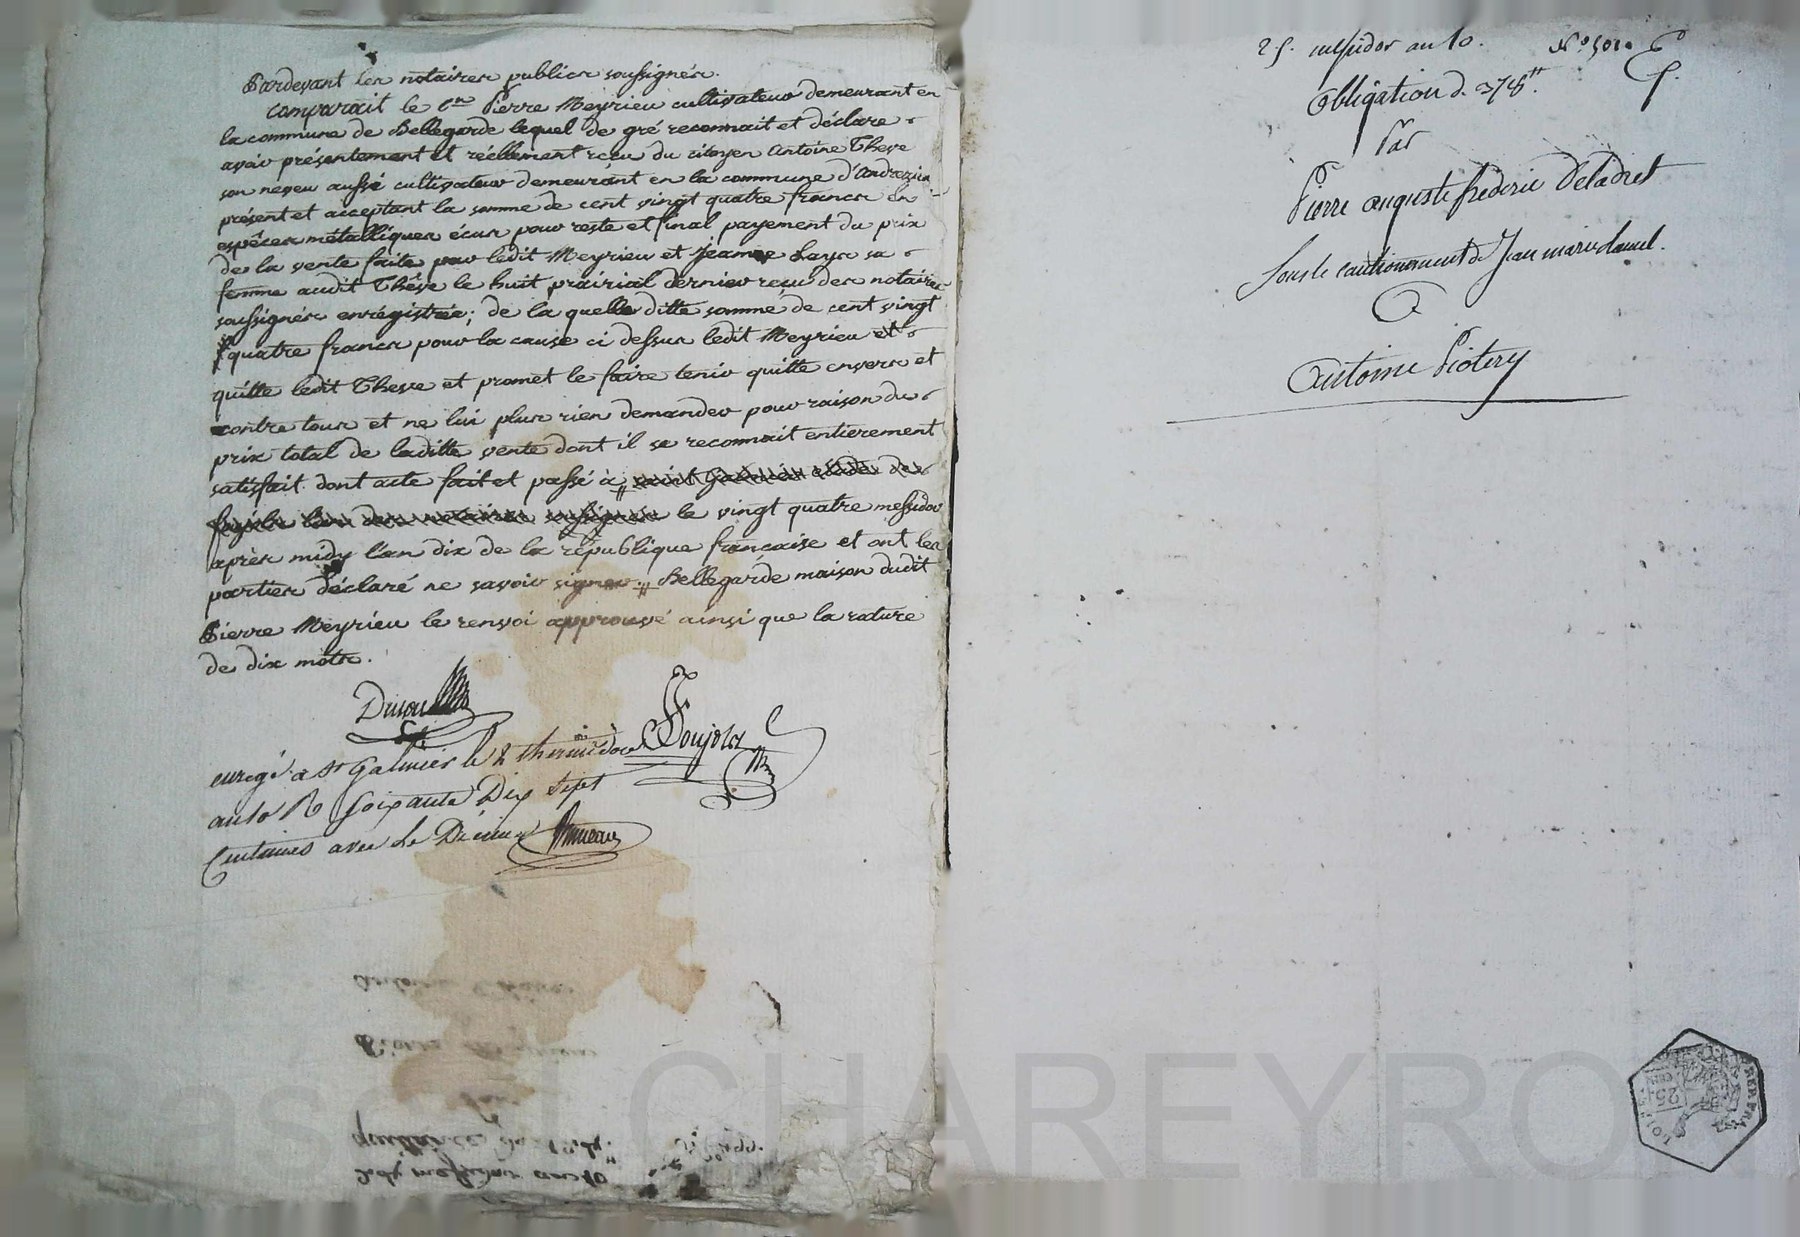 Pardevant les notaires publics soussignés.
comparait le Cen Pierre Meyrieu cultivateur demeurant en
la commune de Bellegarde lequel de gré reconnait et déclare
avoir présentement et réellement reçu du citoyen Antoine Theve
son neveu aussi cultivateur demeurant en la commune d'andrezieu
présent et acceptant la somme de cent vingt quatre francs en
espêces métalliques écus pour reste et final payement du prix
de la vente faite par ledit Meyrieu et Jeanne sa
femme audit Théve le huit prairial dernier reçu des notaires
soussignés enrégistrée; de la quelle ditte somme de cent vingt
quatre francs pour la cause ci dessus ledit Meyrieu et
quitte ledit Theve et promet le faire tenir quitte envers et
contre tous et ne lui plus rien demander pour raison du
prix total de laditte vente dont il se reconnait entierement
satisfait. dont acte fait et passé à
le vingt quatre messidor
après midy l'an dix de la république française et ont les
parties déclaré ne savoir signer. Bellegarde maison dudit
Pierre Meyrieu le renvoi approuvé ainsi que la rature
de dix mots.
enregé. a St Galmier le 2 thermidor
an 10 R soixante Dix sept
Centimes avec le Décime
25. messidor an 10. N° 501.
Obligation d. 378tt.
Par
Pierre auguste frederic Deladret
sous le cautionnement de Jean marie
A
Antoine Piotery
Pascal CHAREYRON
REP. FRA.
25
CEN